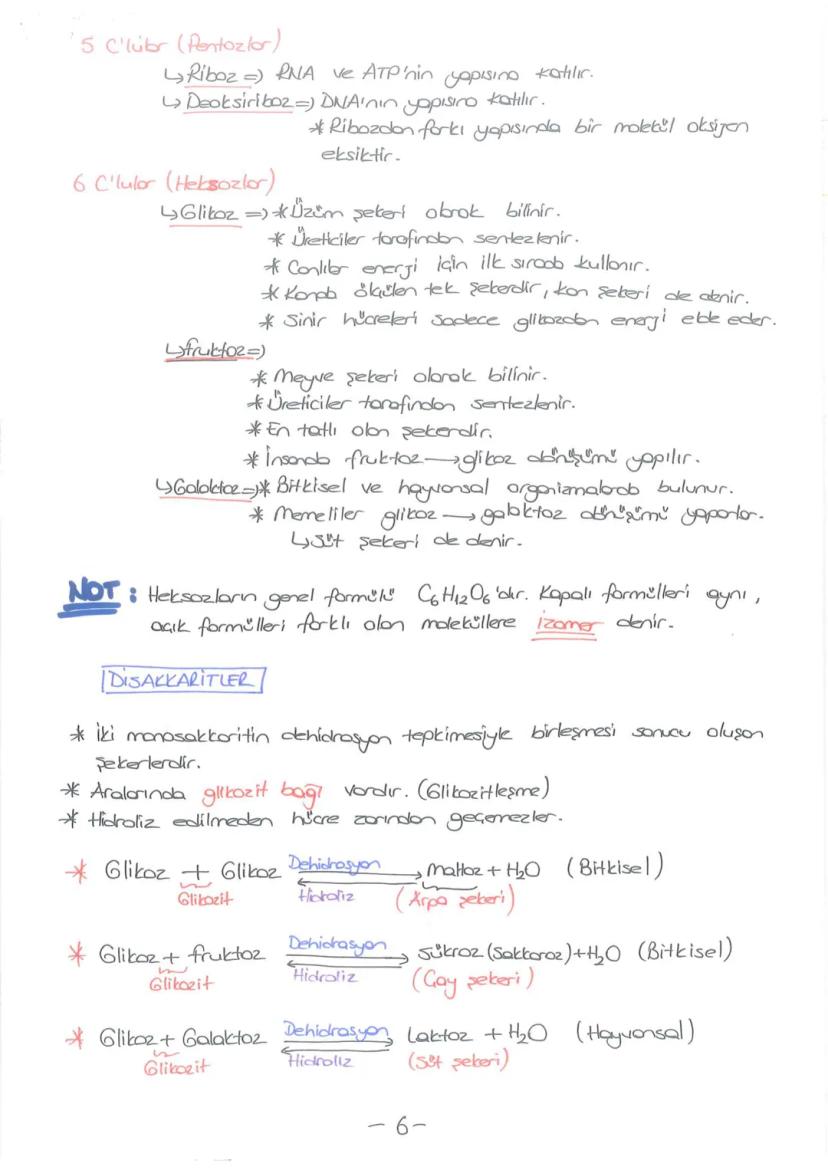 5 C'lular (Pentozlar)
↳Riboz => RNA ve ATP'nin yapısına katılır.
↳Deoksiriboz=> DNA'nın yapısına katılır.
* Ribozdan farkı yapısında bir molekül oksijen
eksiktir.
6 C'lular (Heksozlar)
↳Glikoz => * Üzüm şekeri olarak bilinir.
* Üreticiler tarafından sentezlenir.
* Canlılar enerji için ilk sırada kullanır.
* Kanda ölçülen tek şekerdir, kan şekeri de denir.
* Sinir hücreleri sadece glikozdan enerji elde eder.
↳fruktoz=>
* Meyve şekeri olarak bilinir.
* Üreticiler tarafından sentezlenir.
* En tatlı olan şekerdir.
* İnsanda fruktoz → glikoz dönüşümü yapılır.
↳Galaktoz=>* Bitkisel ve hayvansal organizmalarda bulunur.
* Memeliler glikoz → galaktoz dönüşümü yaparlar.
↳Süt şekeri de denir.
NOT : Heksozların genel formülü C₆H₁₂O₆'dır. Kapalı formülleri aynı,
açık formülleri farklı olan moleküllere izomer denir.
DİSAKKARİTLER
* İki monosakkaritin dehidrasyon tepkimesiyle birleşmesi sonucu oluşan
şekerlerdir.
* Aralarında glikozit bağı vardır. (Glikozitleşme)
* Hidroliz edilmeden hücre zarından geçemezler.
* Glikoz + Glikoz Dehidrasyon Maltoz + H₂O (Bitkisel)
Glikozit Hidroliz (Arpa şekeri)
* Glikoz + fruktoz Dehidrasyon Sükroz (Sakkaroz)+H₂O (Bitkisel)
Glikozit Hidroliz (Çay şekeri)
* Glikoz + Galaktoz Dehidrasyon Laktoz + H₂O (Hayvansal)
Glikozit Hidroliz (Süt şekeri)
- 6 -